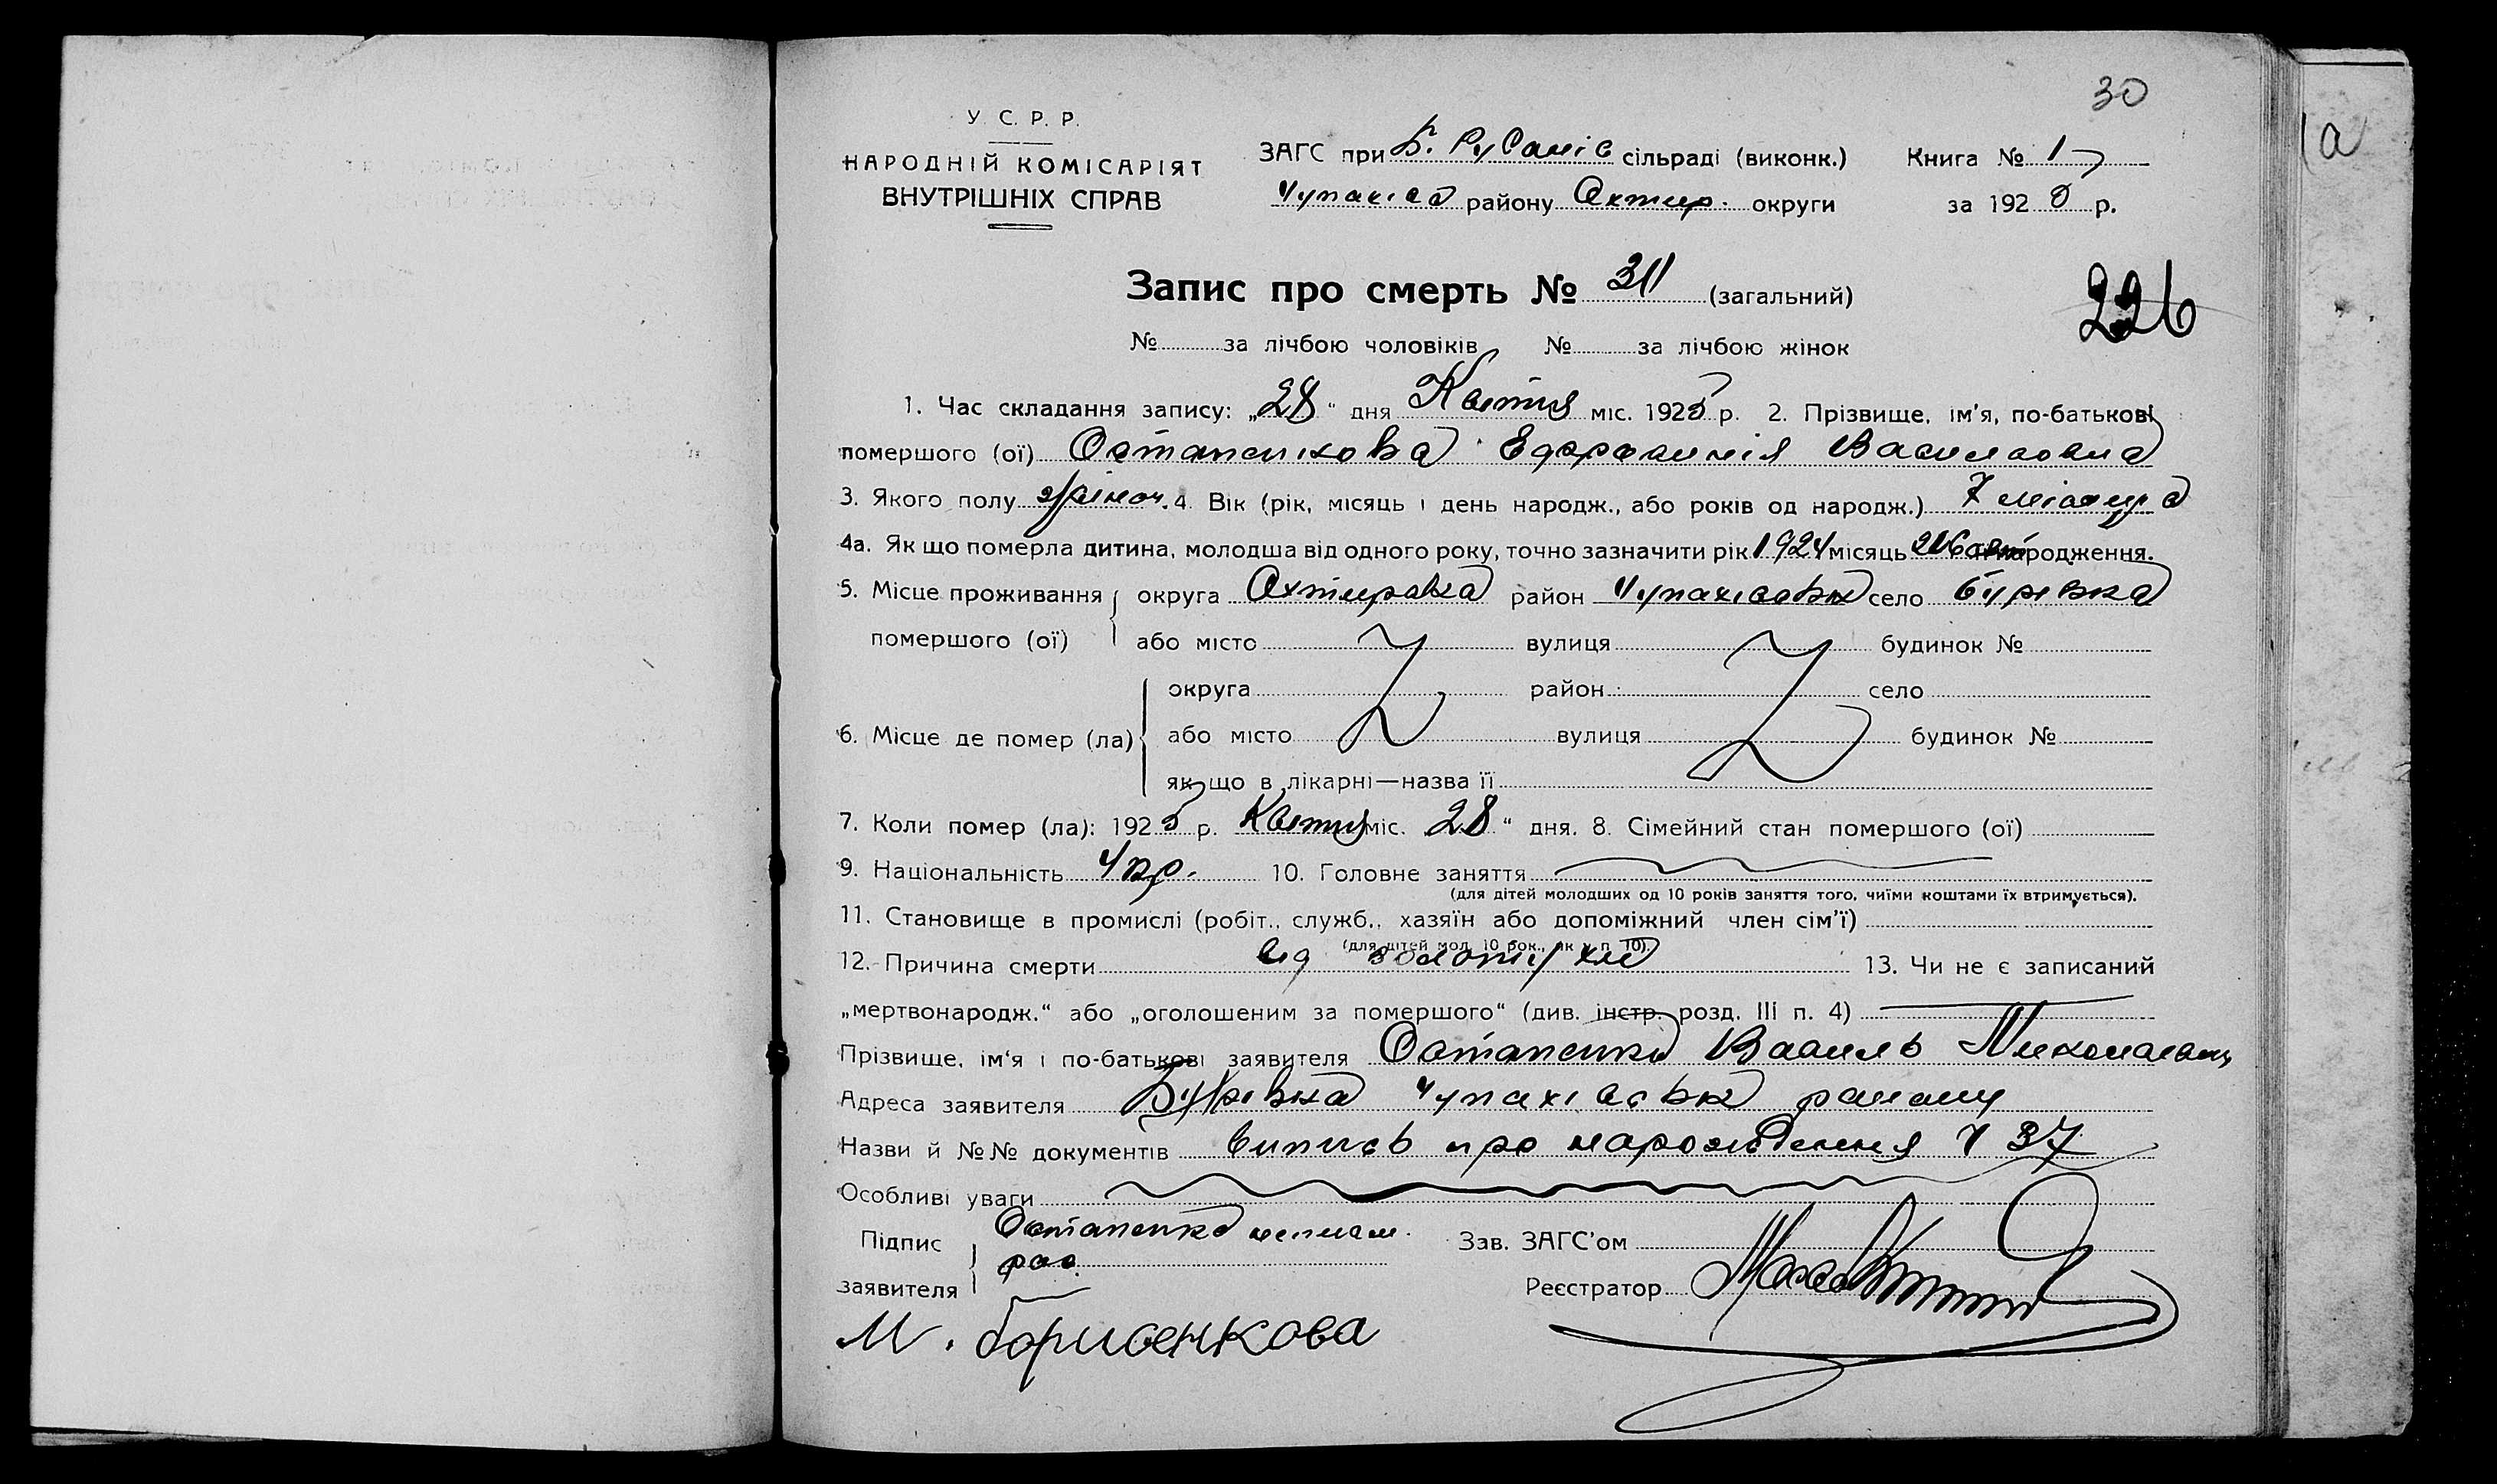 30
У. С. Р. Р.
НАРОДНІЙ КОМІСАРІЯТ
ВНУТРІШНІХ СПРАВ
ЗАГС при Б. Русанів сільраді (виконк.)
Чупахів району Охтир. округи
Книга № 1
за 192 р.
Запис про смерть № 311 (загальний)
226
№ за лічбою чоловіків № за лічбою жінок
1. Час складання запису: „28“ дня Квітня міс. 1925 р. 2. Прізвище, ім'я, по-батькові
помершого (ої) Остапенкова Васильовна
3. Якого полу жіноч. 4. Вік (рік, місяць і день народж., або років од народж.) 7 місяців
4а. Як що померла дитина, молодша від одного року, точно зазначити рік 1924 місяць народження.
5. Місце проживання округа Охтирська район Чупахівськ село Бурівка
помершого (ої) або місто вулиця будинок №
округа район село
6. Місце де помер (ла) або місто вулиця будинок №
як що в лікарні—назва її
7. Коли помер (ла): 1925 р. Квітня міс. 28“ дня. 8. Сімейний стан помершого (ої)
9. Національність Укр. 10. Головне заняття
(для дітей молодших од 10 років заняття того, чиїми коштами їх втримується).
11. Становище в промислі (робіт., служб., хазяїн або допоміжний член сім'ї)
(для дітей мол. 10 рок., як у п. 10).
12. Причина смерти від золотухи 13. Чи не є записаний
„мертвонародж.“ або „оголошеним за помершого“ (див. інстр. розд. III п. 4)
Прізвище, ім'я і по-батькові заявителя Остапенко Василь Миколаевич
Адреса заявителя Бурівка Чупахівськ району
Назви й №№ документів випись про нарождення № 37
Особливі уваги
Підпис Остапенко неписьм.
заявителя
Зав. ЗАГС'ом
Реєстратор
М. Борисенкова